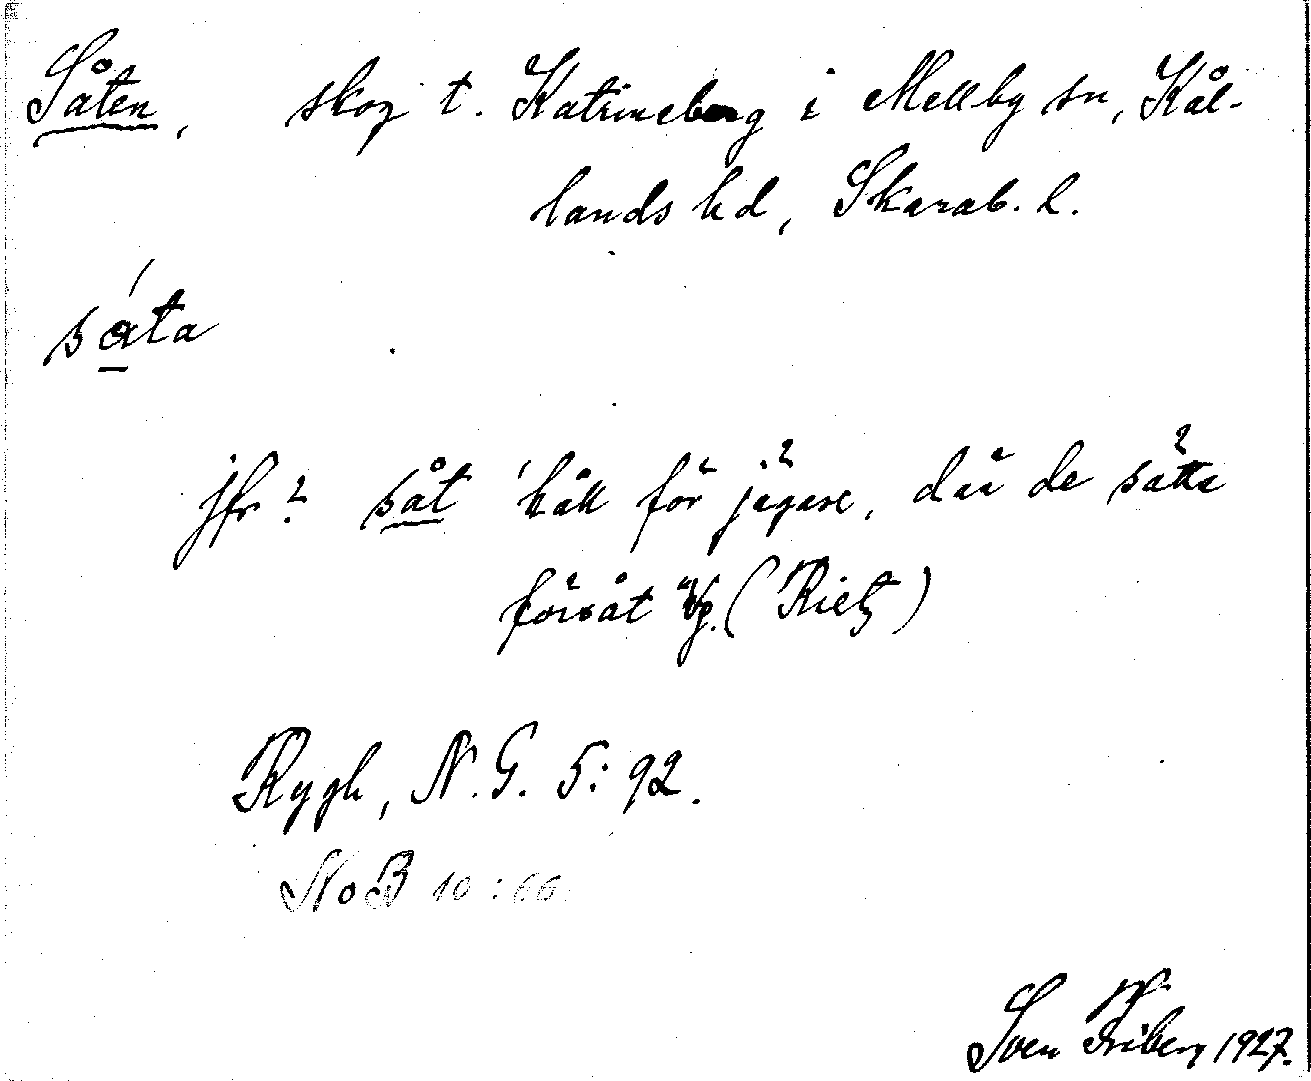 Såten, skog t. Katrineberg i Mellby sn, Kål-
lands hd, Skarab. l.
såta
jfr? såt 'håll för jägare, där de sätta
försåt' Vg. (Rietz)
Rygh, N.G. 5:92.
NoB 10:66.
Sven Friberg 1927.